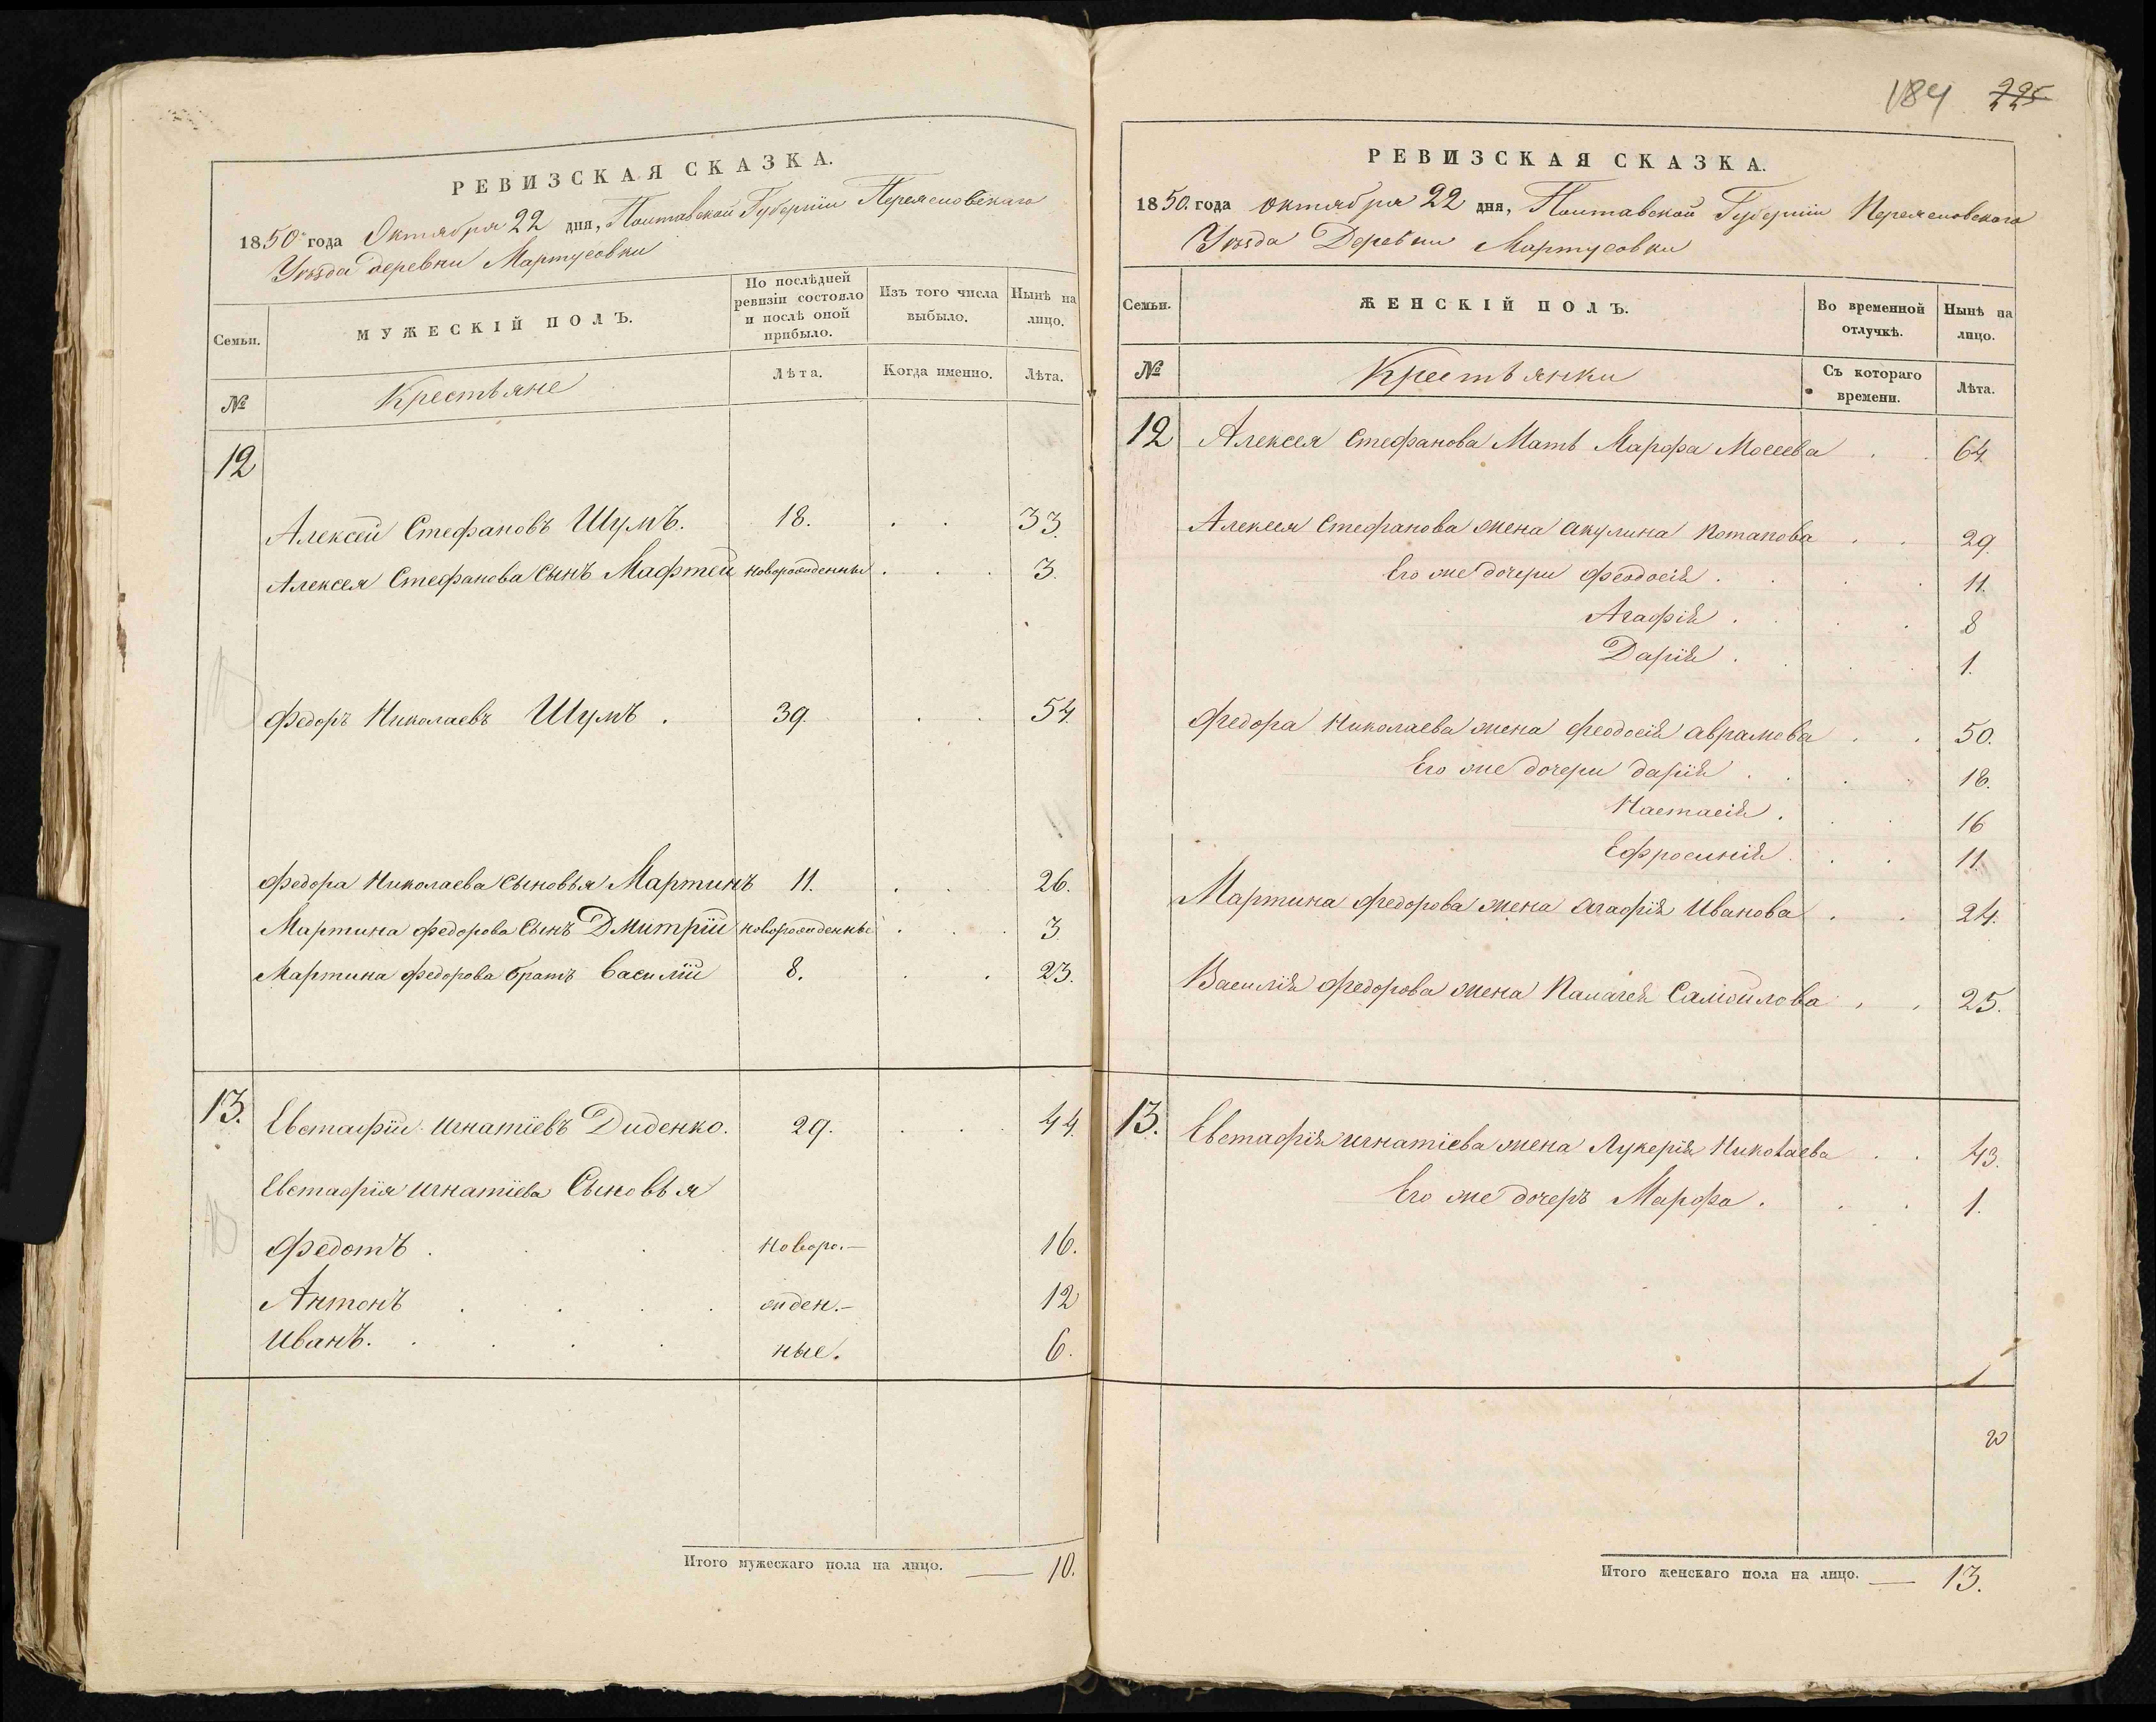 РЕВИЗСКАЯ СКАЗКА.
1850 года Октября 22 дня, Полтавской Губернии Переясловскаго
Уѣзда деревни Мартусовки
Семьи.
МУЖЕСКІЙ ПОЛЪ.
По послѣдней ревизіи состояло и послѣ оной прибыло.
Изъ того числа выбыло.
Нынѣ на лицо.
№
Крестьяне
Лѣта.
Когда именно.
Лѣта.
12
Алексей Стефановъ Шумъ. 18. 33.
Алексея Стефанова Сынъ Мафтей новорожденны 3.
Федоръ Николаевъ Шумъ. 39. 54.
Федора Николаева Сыновья Мартинъ 11. 26.
Мартина Федорова Сынъ Дмитрій новорожденны 3
Мартина Федорова братъ Василій 8. 23.
13. Евстафій Игнатіевъ Диденко. 29. 44.
Евстафія Игнатіева Сыновья
Федотъ. новоро.— 16.
Антонъ жден.— 12
Иванъ. ные. 6.
Итого мужескаго пола на лицо. — 10.
184 225
РЕВИЗСКАЯ СКАЗКА.
1850. года Октября 22 дня, Полтавской Губерніи Переясловскаго
Уѣзда Деревни Мартусовки
Семьи.
ЖЕНСКІЙ ПОЛЪ.
Во временной отлучкѣ.
Нынѣ на лицо.
№
Крестьянки
Съ котораго времени.
Лѣта.
12 Алексея Стефанова Мать Марфа Мосеева 64.
Алексея Стефанова жена Акулина Потапова 29.
Его же дочери Феодосія. 11.
Агафія. 8
Дарія. 1.
Федора Николаева жена Феодосія Аврамова 50.
Его же дочери Дарія 18.
Настасія. 16
Ефросинія. 11.
Мартина Федорова жена Агафія Иванова 24.
Василія Федорова жена Палагея Самойлова 25.
13. Евстафія Игнатіева жена Лукерія Николаева 43.
Его же дочеръ Марфа. 1.
Итого женскаго пола на лицо. — 13.